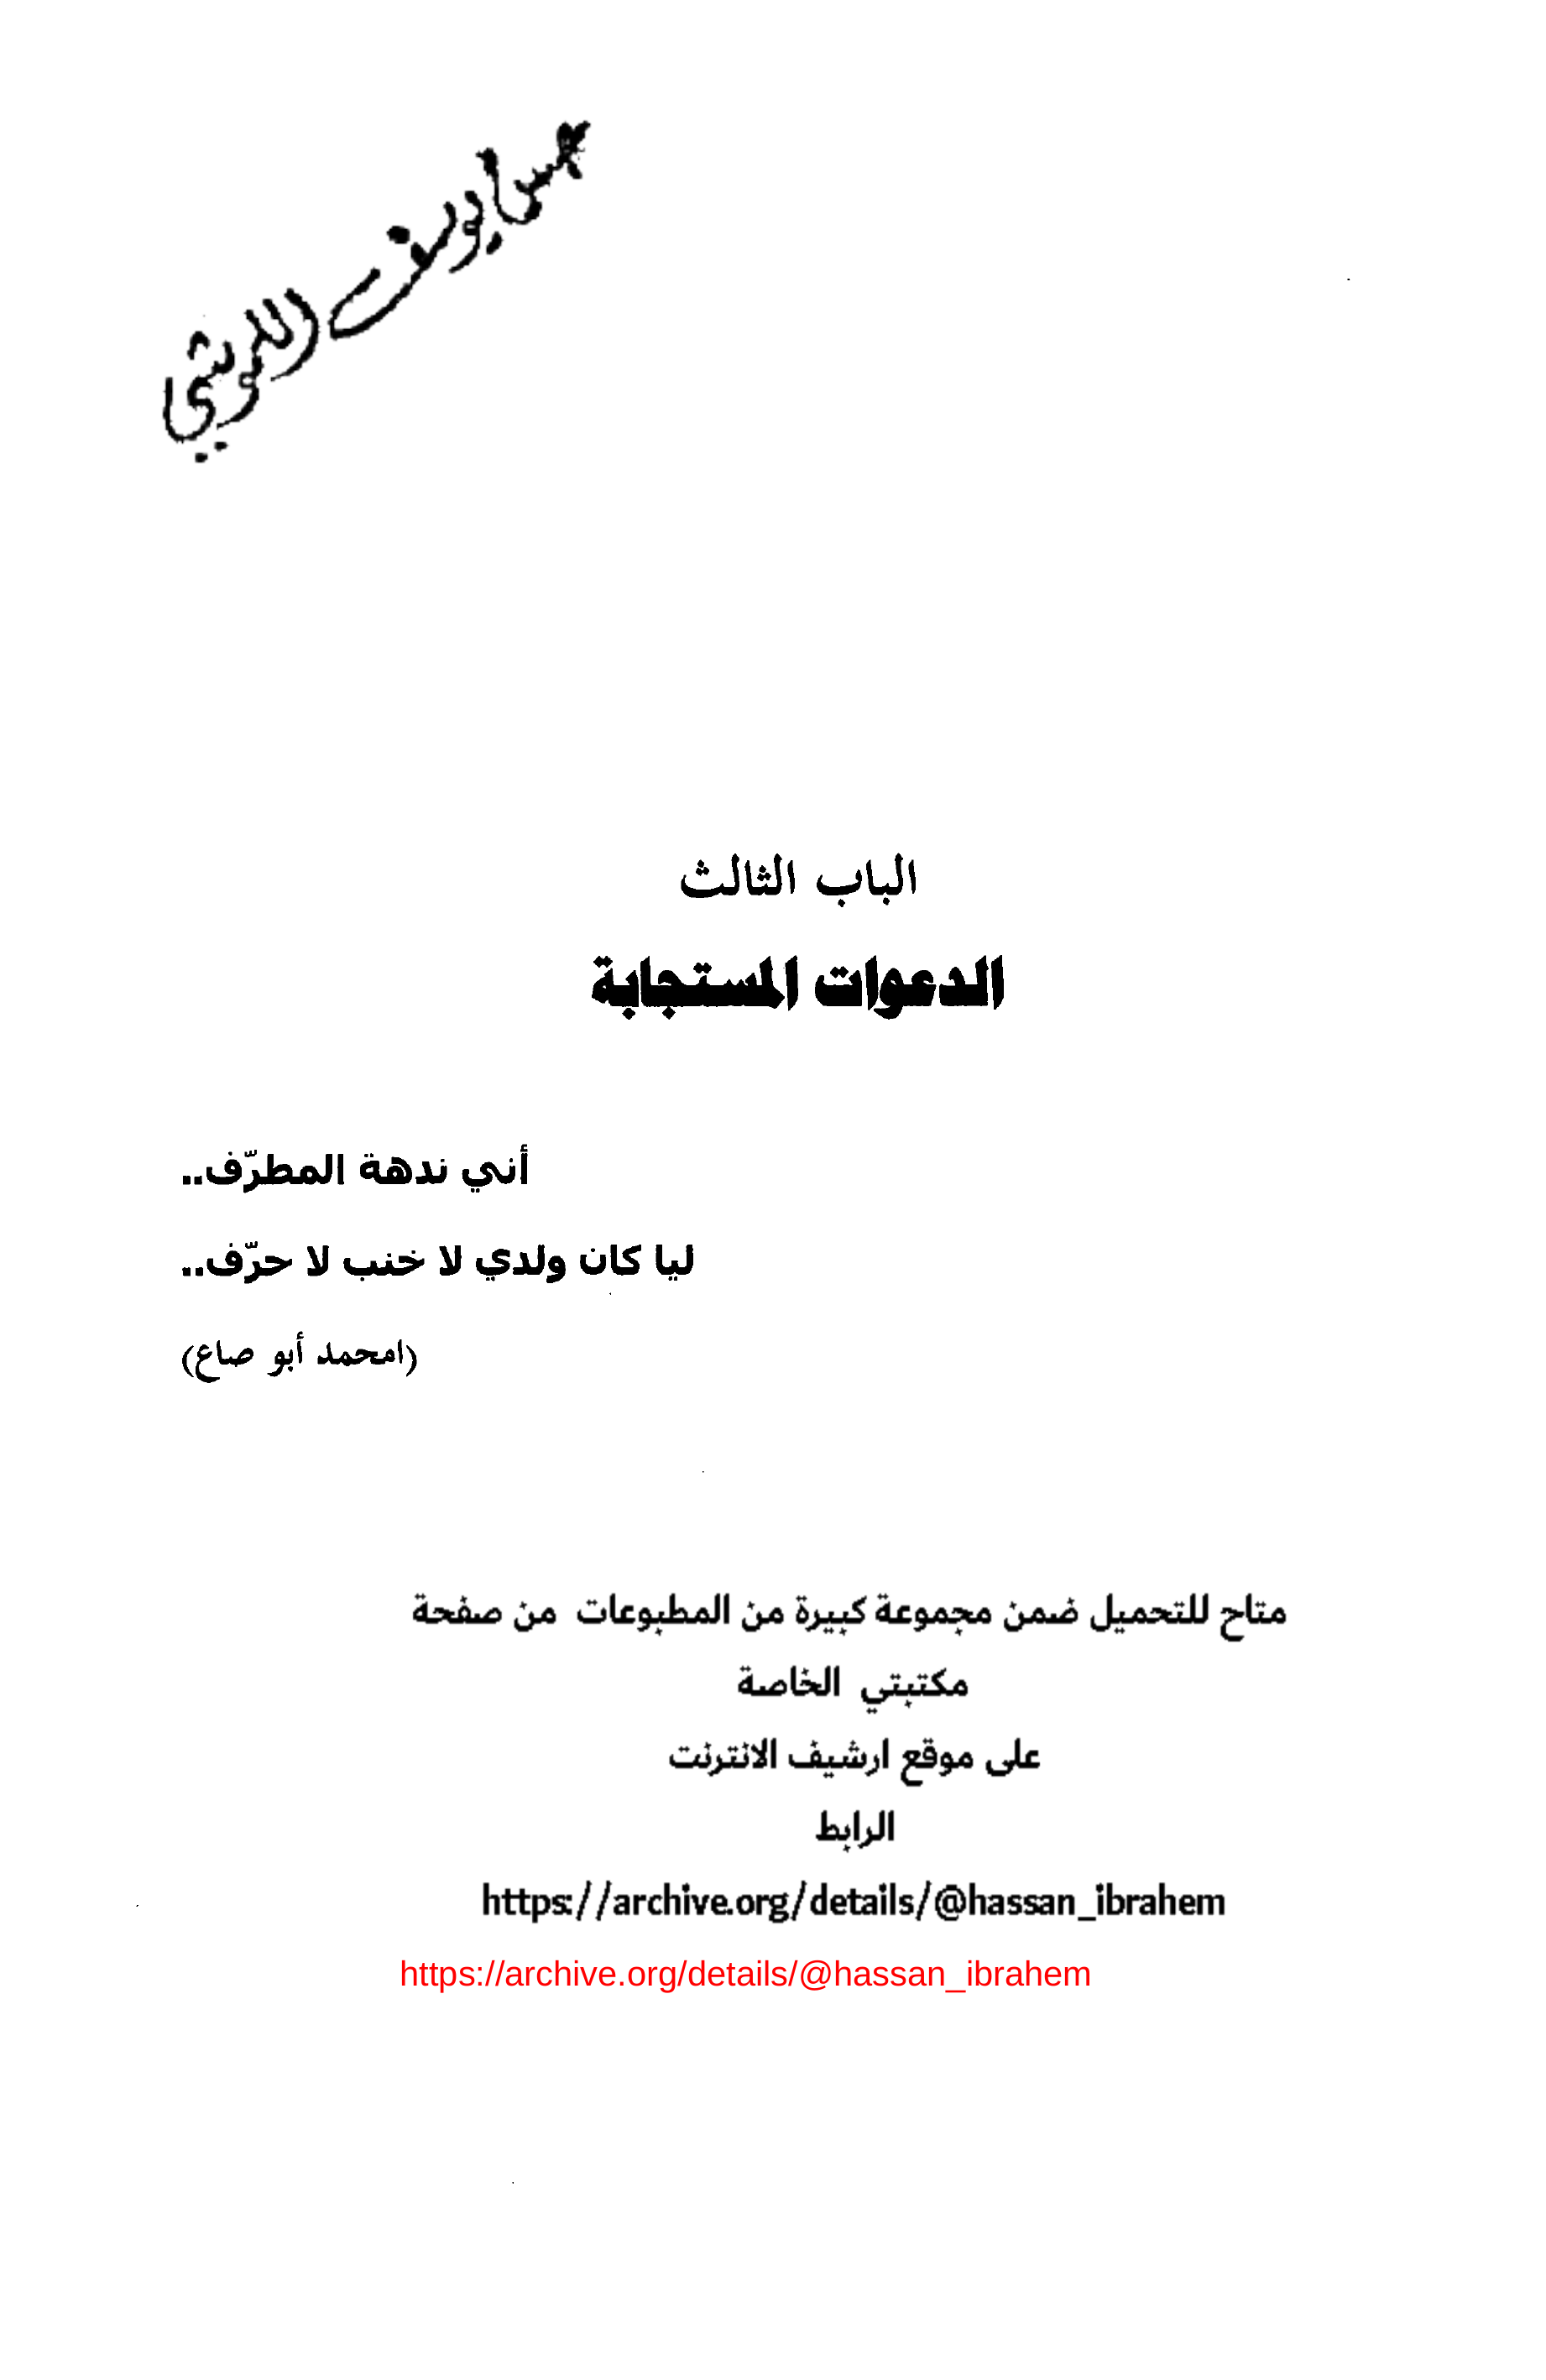 الباب الثالث
الدعوات المستجابة
أني ندهة المطرّف..
ليا كان ولدي لا خنب لا حرّف..
(امحمد أبو صاع)
متاح للتحميل ضمن مجموعة كبيرة من المطبوعات من صفحة
مكتبتي الخاصة
على موقع ارشيف الانترنت
الرابط
https://archive.org/details/@hassan_ibrahem
https://archive.org/details/@hassan_ibrahem